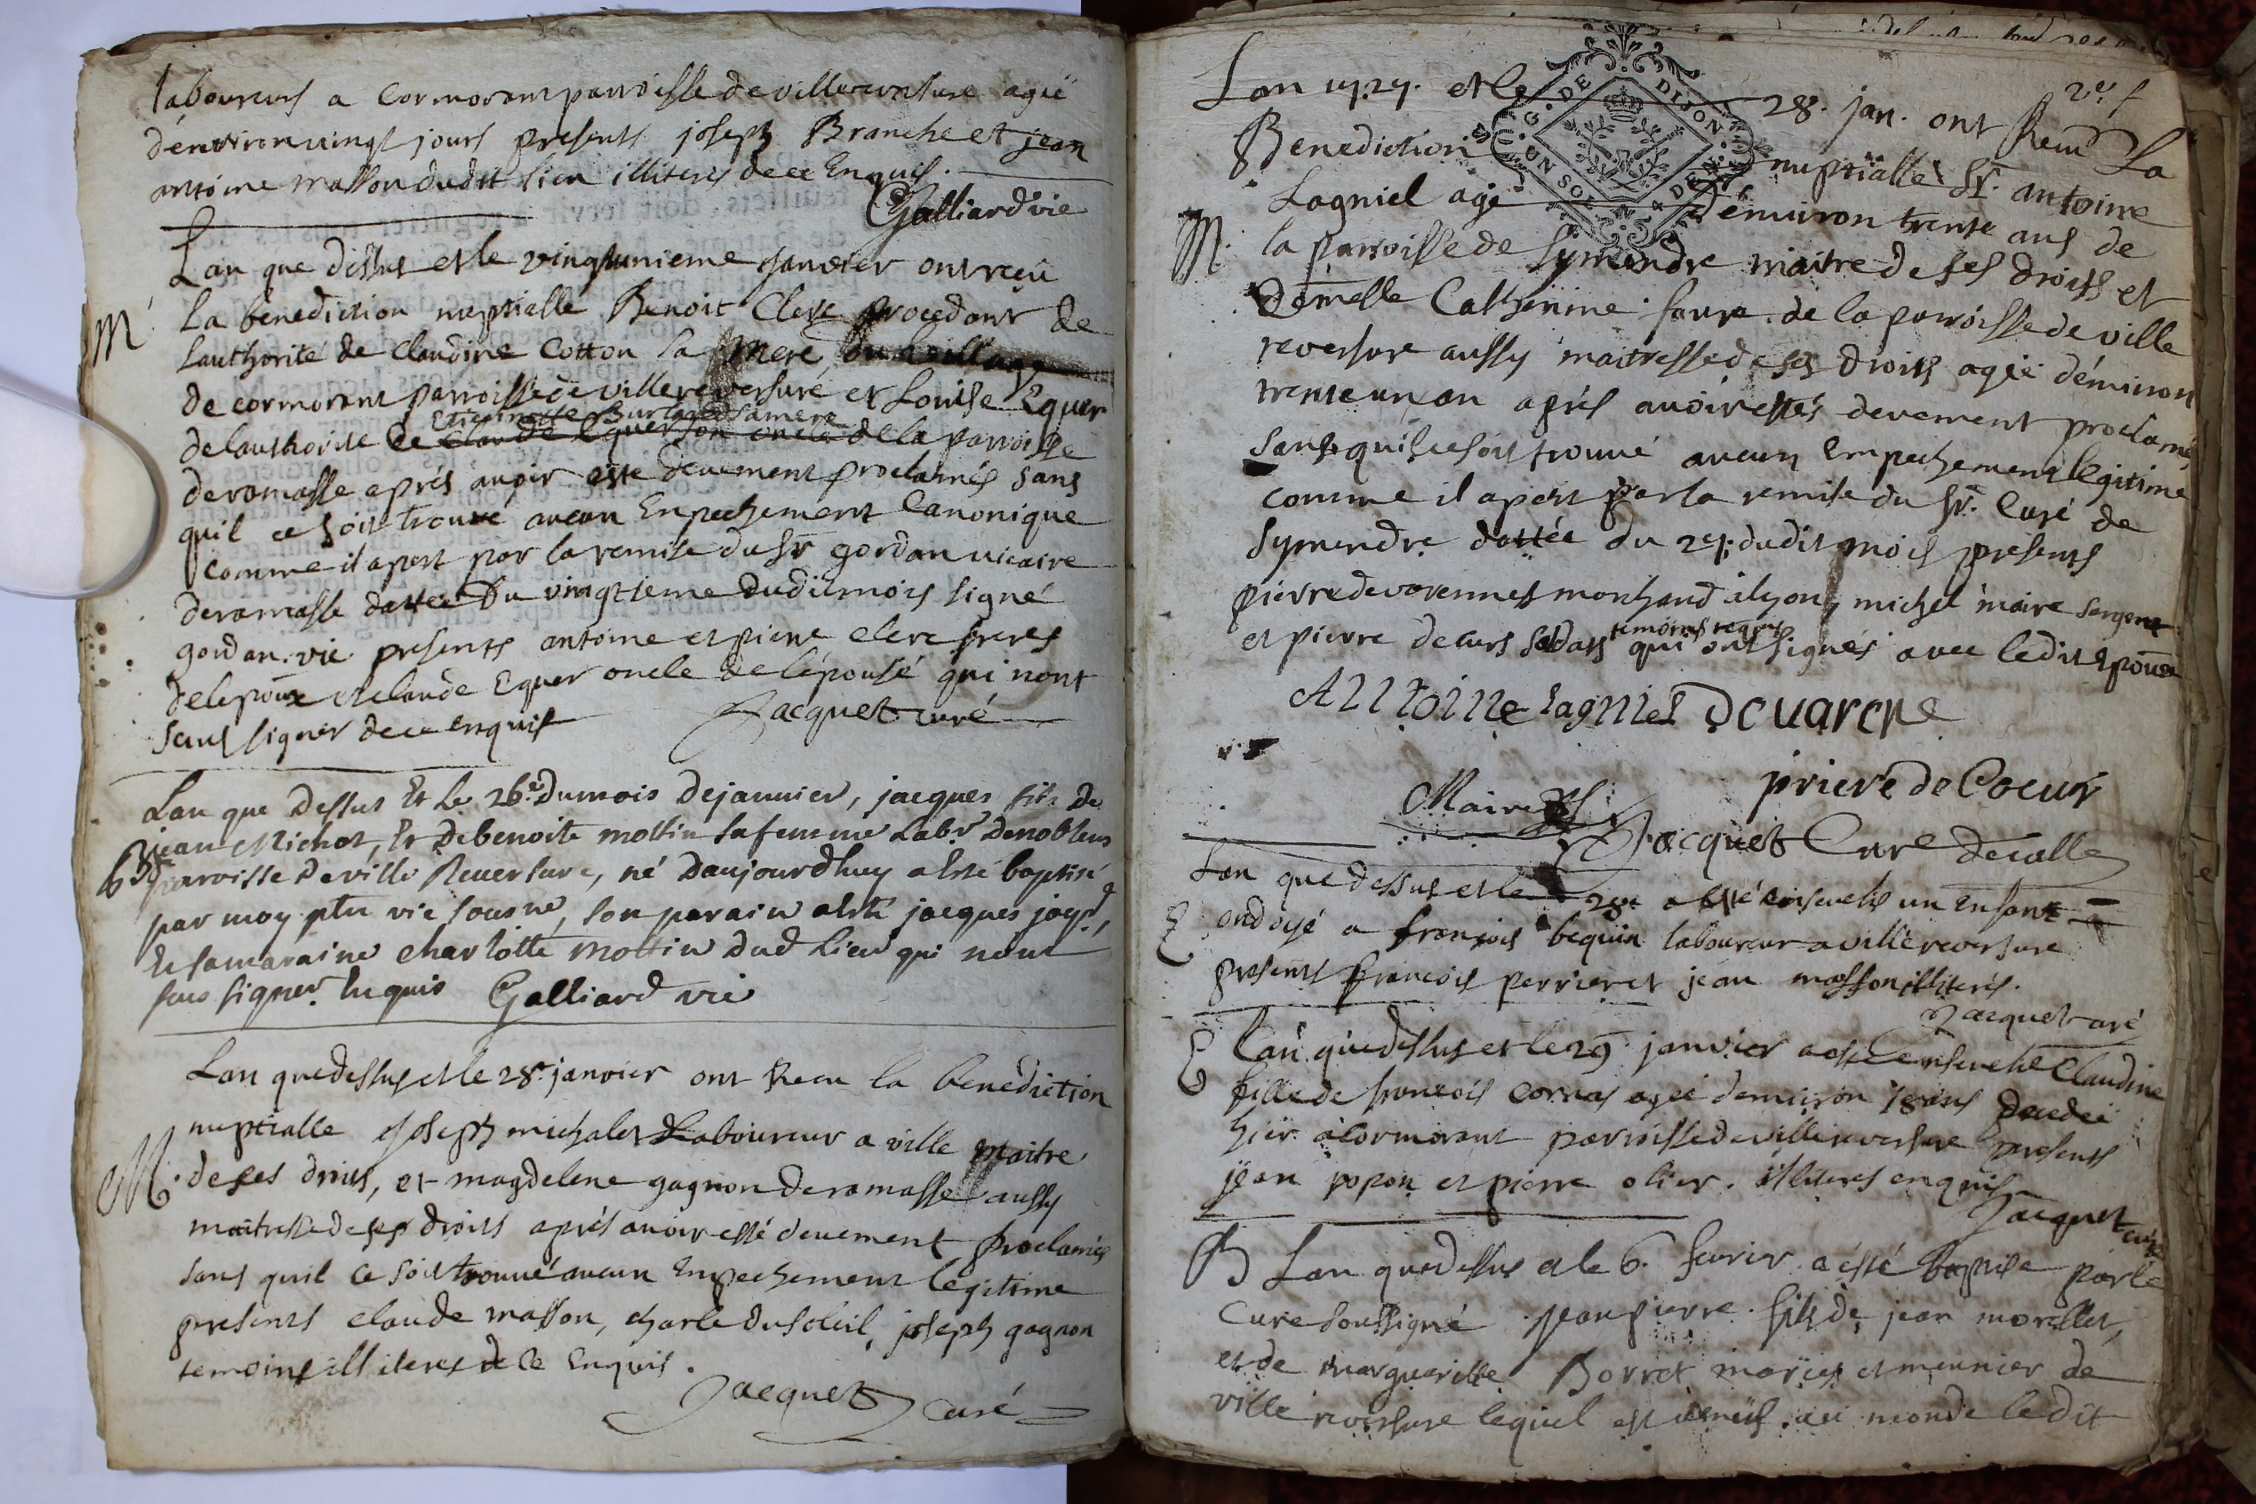 laboureurs a Cormorant parroisse de villereversure agée
d'environ vingt jours presents joseph Branche et jean
antoine masson dudit lieu illiterés de ce Enquis.
Galliard vic
Lan que dessus et le vingt unieme janvier ont reçu
M
La benediction nuptialle Benoit Clerc procedant de
lauthorité de Claudine Cotton sa Mere
de cormorant parroisse de villereversure et Louise Equer
Etiennette sa mere
de lauthorité de Claude Equer son oncle de la parroisse
de ramasse aprés avoir esté deuement proclamés sans
quil ce soit trouvé aucun Enpechement Canonique
comme il apert par la remise du Sr gordan vicaire
de ramasse dattée Du vingtieme dudit mois signé
gordan. vic presents antoine et pierre clerc freres
de lepoux et claude Equer oncle de lépouse qui nont
sceus signer de ce enquis
Jacquet curé
Lan que dessus Et le 26e du mois de janvier, jacques fils de
jean Michon, Et de benoite mottin sa femme Labr
B
parroisse de ville Reversure, né D'aujourdhuy a Esté baptisé
par moy ptre vic sousné, son parain a Esté jacques
Et sa maraine charlotte Mottin Dud Lieu qui n'ont
sceus signer Enquis Galliard vic
Lan que dessus et le 28e janvier ont Receu la benediction
nuptialle joseph michalet Laboureur a ville maitre
M.
de ses droits, et magdelene gagnon de ramasse aussy
maitresse de ses droits aprés avoir esté deuement proclamés
sans quil ce soit trouvé aucun Enpechement legitime
presents claude masson, charle du soleil, joseph gagnon
temoins illiteres de ce Enquis.
Jacquet curé
G. DE DIJON
UN SOL 4 DEN.
2e f
Lan 1729. et le 28. jan. ont Receu La
Benediction nuptialle Sr. antoine
Lagniel agé d'environ trente ans de
M.
la parroisse de Symandre maitre de ses droits et
Demelle Catherine favre de la parroisse de ville
reversure aussy maitresse de ses droits agée d'environ
trente un an aprés avoir estés deuement proclamés
sans quil ce soit trouvé aucun Empechement legitime
comme il apert par la remise du Sr. Curé de
Symandre dattée du dudit mois presents
pierre de varennes marchand a lyon, michel maire sergent
temoins requis
et pierre de curs soldats qui ont signés avec ledit Epoux
Antoine Lagniel Devarene
Maire
priere de Coeur
Jacquet Curé
Lan que dessus et le a esté ensevelis un Enfant
E
ondoyé a françois bequin laboureur a villereversure
presents françois perrier et jean masson illiterés.
Jacquet curé
E
Lan que dessus et le 29 janvier a esté ensevelie Claudine
fille de françois cornas agée d'environ ans decedée
hier a Cormorant parroisse de villereversure presents
jean popon et pierre olier. illiteres enquis
Jacquet curé
B
Lan que dessus et le 6. fevrier a esté baptisé par le
Curé soussigné Jean pierre fils de jean morellet,
et de marguerite Borret mariés et meunier de
ville reversure lequel est venus au monde ledit